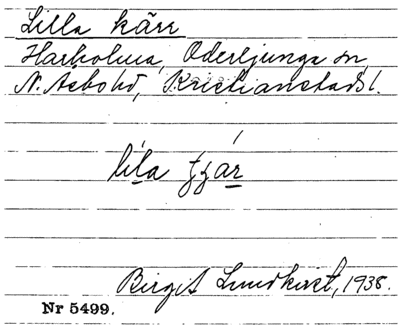 Lilla kärr
Harholma, Oderljunga sn,
N. Åsbohd, Kristianstads l.
lila tjär
Birgit Lundkvist, 1938.
Nr 5499.